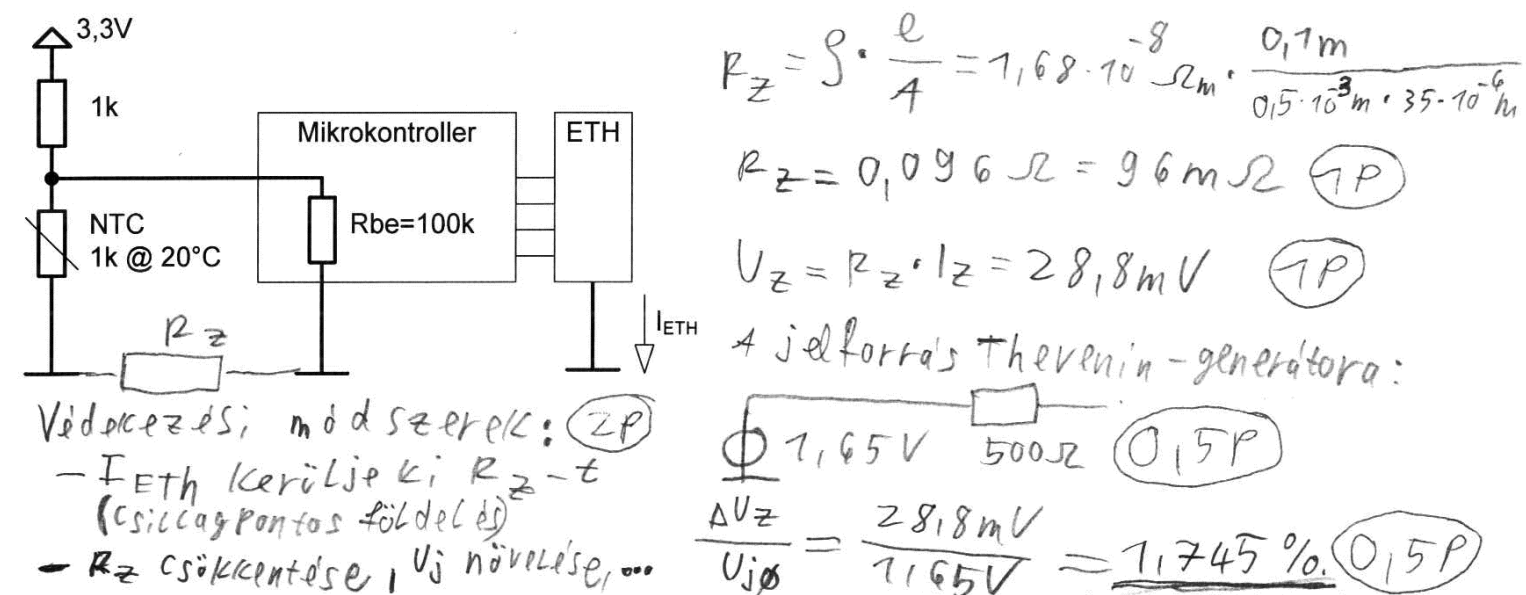 3,3V
1k
Mikrokontroller
ETH
NTC
1k @ 20°C
Rbe=100k
I_ETH
R_Z
Védekezési módszerek: 2P
- I_Eth kerülje ki R_Z-t
(csillagpontos földelés)
- R_Z csökkentése, Uj növelése, ...
R_Z = ρ · l/A = 1,68·10^-8 Ωm · 0,1m / (0,5·10^-3 m · 35·10^-6 m)
R_Z = 0,096 Ω = 96 mΩ 1P
U_Z = R_Z · I_Z = 28,8mV 1P
A jelforrás Thevenin-generátora:
1,65V 500Ω 0,5P
ΔU_Z/Ujø = 28,8mV/1,65V = 1,745 %. 0,5P